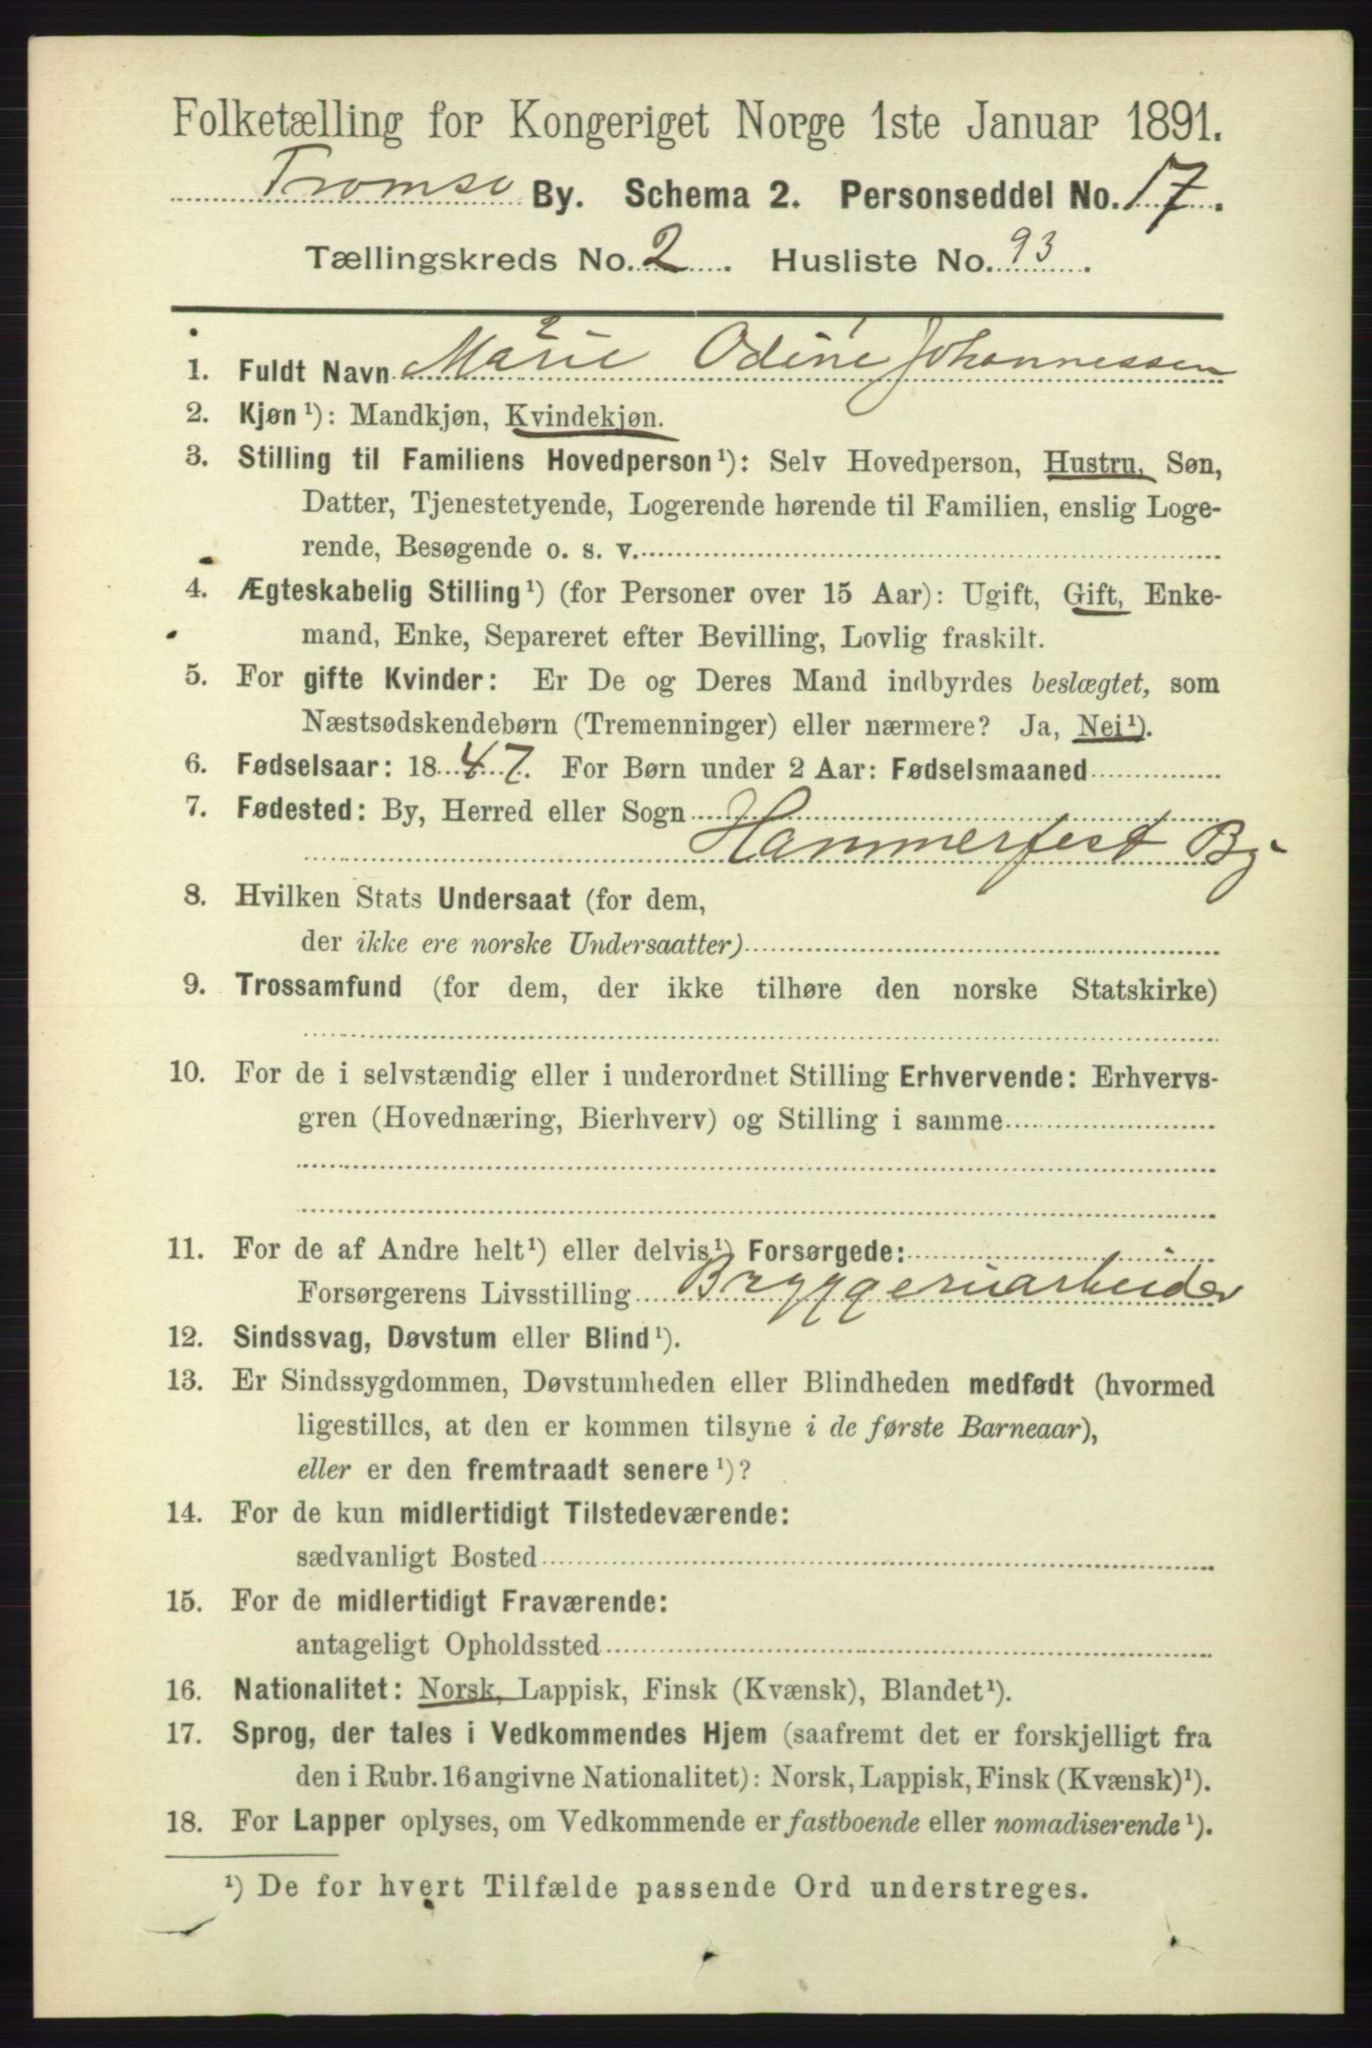 Folketælling for Kongeriget Norge 1ste Januar 1891.
Tromsø By. Schema 2. Personseddel No. 17.
Tællingskreds No. 2. Husliste No. 93.
1. Fuldt Navn Marie Odine Johannessen
2. Kjøn ¹): Mandkjøn, Kvindekjøn.
3. Stilling til Familiens Hovedperson ¹): Selv Hovedperson, Hustru, Søn,
Datter, Tjenestetyende, Logerende hørende til Familien, enslig Loge-
rende, Besøgende o. s. v.
4. Ægteskabelig Stilling ¹) (for Personer over 15 Aar): Ugift, Gift, Enke-
mand, Enke, Separeret efter Bevilling, Lovlig fraskilt.
5. For gifte Kvinder: Er De og Deres Mand indbyrdes beslægtet, som
Næstsødskendebørn (Tremenninger) eller nærmere? Ja, Nei ¹).
6. Fødselsaar: 1847. For Børn under 2 Aar: Fødselsmaaned
7. Fødested: By, Herred eller Sogn
Hammerfest By
8. Hvilken Stats Undersaat (for dem,
der ikke ere norske Undersaatter)
9. Trossamfund (for dem, der ikke tilhøre den norske Statskirke)
10. For de i selvstændig eller i underordnet Stilling Erhvervende: Erhvervs-
gren (Hovednæring, Bierhverv) og Stilling i samme
11. For de af Andre helt ¹) eller delvis ¹) Forsørgede:
Forsørgerens Livsstilling Bryggeriarbeider
12. Sindssvag, Døvstum eller Blind ¹).
13. Er Sindssygdommen, Døvstumheden eller Blindheden medfødt (hvormed
ligestilles, at den er kommen tilsyne i de første Barneaar),
eller er den fremtraadt senere ¹)?
14. For de kun midlertidigt Tilstedeværende:
sædvanligt Bosted
15. For de midlertidigt Fraværende:
antageligt Opholdssted
16. Nationalitet: Norsk, Lappisk, Finsk (Kvænsk), Blandet ¹).
17. Sprog, der tales i Vedkommendes Hjem (saafremt det er forskjelligt fra
den i Rubr. 16 angivne Nationalitet): Norsk, Lappisk, Finsk (Kvænsk) ¹).
18. For Lapper oplyses, om Vedkommende er fastboende eller nomadiserende ¹).
¹) De for hvert Tilfælde passende Ord understreges.